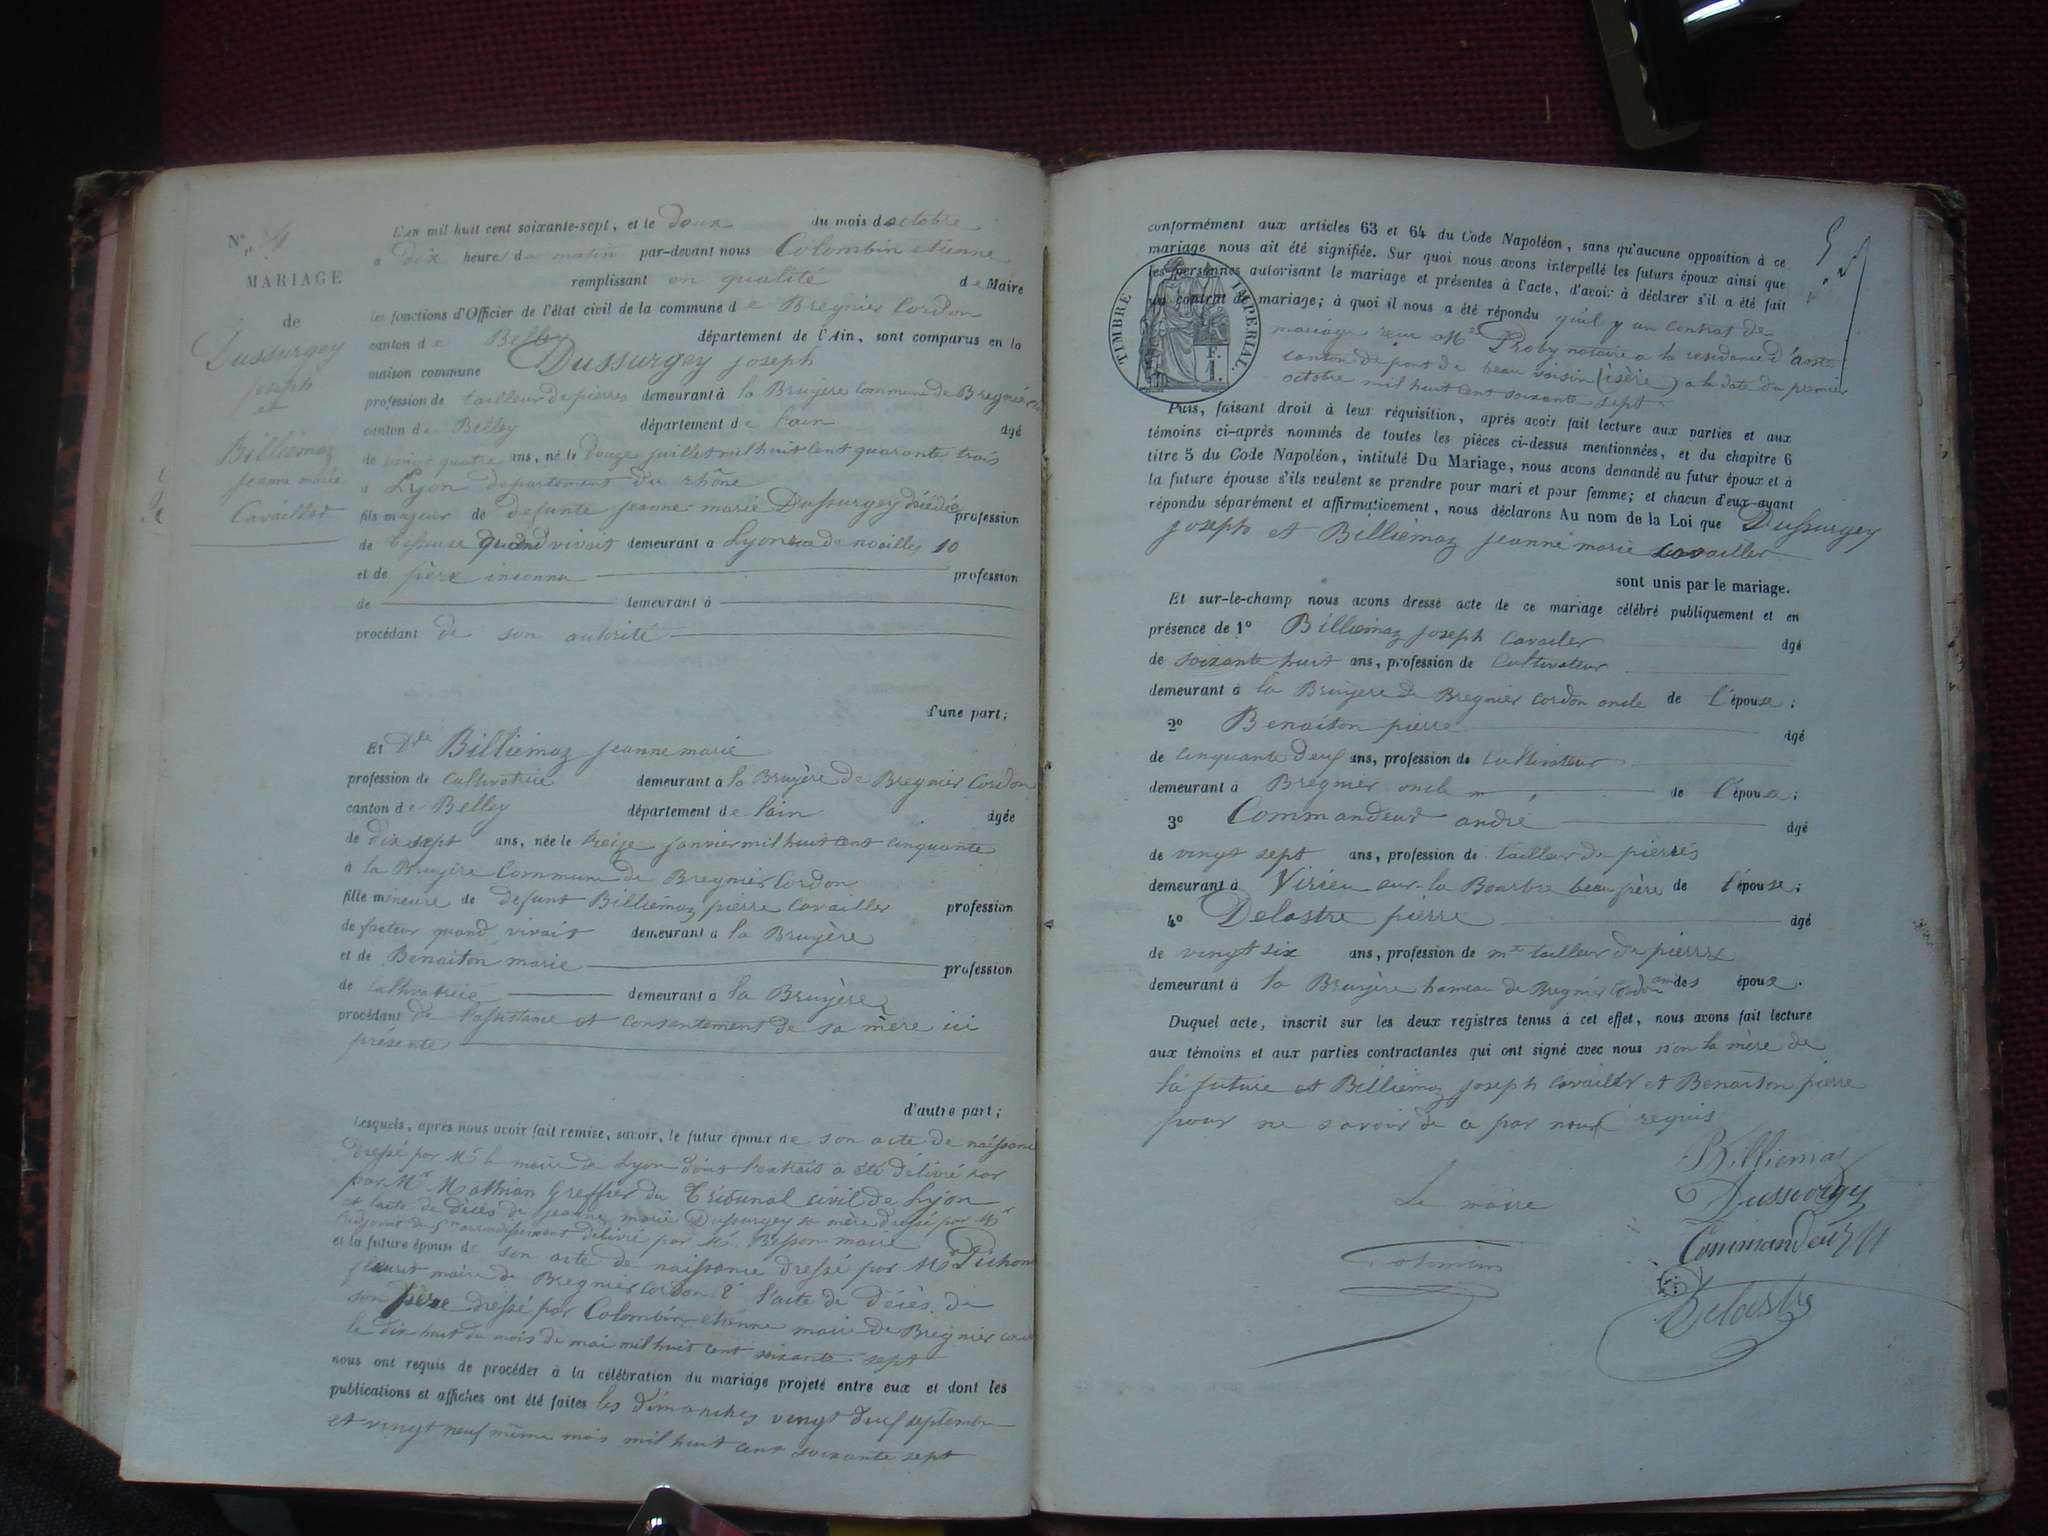 N°
MARIAGE
de
Dussurgey
Joseph
et
Billiemaz
jeanne marie
Cavailler
L'an mil huit cent soixante-sept, et le deux du mois d'octobre
à dix heure du matin par-devant nous Colombin etienne
remplissant en qualité de Maire
les fonctions d'Officier de l'état civil de la commune de Bregnier Cordon
canton de Belley département de l'Ain, sont comparus en la
maison commune Dussurgey joseph
profession de tailleur de pierres demeurant à la Bruyère commune de Bregnier
canton de Belley département de l'ain âgé
de vingt quatre ans, né le douze juillet mil huit cent quarante trois
à Lyon departement du rhône
fils majeur de defunte jeanne marie Dussurgey décédée profession
de quand vivait demeurant à Lyon rue de noailles 10
et de père inconnu profession
de demeurant à
procédant de son autorité
d'une part;
Et Dlle Billiemaz jeanne marie
profession de cultivatrice demeurant à la Bruyère de Bregnier Cordon
canton de Belley département de l'ain âgée
de dix sept ans, née le treize janvier mil huit cent cinquante
à la Bruyère Commune de Bregnier Cordon
fille mineure de defunt Billiemaz pierre Cavailler profession
de facteur quand vivait demeurant à la Bruyère
et de Benaiton marie profession
de cultivatrice demeurant à la Bruyère
procédant de l'assistance et consentement de sa mère ici
présente
d'autre part;
Lesquels, après nous avoir fait remise, savoir, le futur époux de son acte de naissance
dressé par Mr le maire de Lyon dont l'extrait a été délivré par
par Mr Mathian Greffier du Tribunal civil de Lyon
et l'acte de décès de jeanne marie Dussurgey sa mère dressé par Mr
l'adjoint du 5me arrondissement délivré par Mr Besson maire
et la future épouse de son acte de naissance dressé par Mr Pichon
maire de Bregnier Cordon 2° l'acte de décès de
son père dressé par Colombin etienne maire de Bregnier Cordon
le dix huit du mois de mai mil huit cent soixante sept
nous ont requis de procéder à la célébration du mariage projeté entre eux et dont les
publications et affiches ont été faites les dimanches vingt deux septembre
et vingt neuf même mois mil huit cent soixante sept
conformément aux articles 63 et 64 du Code Napoléon, sans qu'aucune opposition à ce
mariage nous ait été signifiée. Sur quoi nous avons interpellé les futurs époux ainsi que
les personnes autorisant le mariage et présentes à l'acte, d'avoir à déclarer s'il a été fait
un contrat de mariage; à quoi il nous a été répondu qu'il y un contrat de
mariage reçu Me Proby notaire a la residence d'aoste
canton de pont de beau voisin (isère) a la date du premier
octobre mil huit cent soixante sept
TIMBRE IMPERIAL
F.
1.
Puis, faisant droit à leur réquisition, après avoir fait lecture aux parties et aux
témoins ci-après nommés de toutes les pièces ci-dessus mentionnées, et du chapitre 6
titre 5 du Code Napoléon, intitulé Du Mariage, nous avons demandé au futur époux et à
la future épouse s'ils veulent se prendre pour mari et pour femme; et chacun d'eux ayant
répondu séparément et affirmativement, nous déclarons Au nom de la Loi que Dussurgey
joseph et Billiemaz jeanne marie cavailler
sont unis par le mariage.
Et sur-le-champ nous avons dressé acte de ce mariage célébré publiquement et en
présence de 1° Billiemaz joseph Cavailer âgé
de soixante huit ans, profession de cultivateur
demeurant à la Bruyère de Bregnier Cordon oncle de l'épouse;
2° Benaiton pierre âgé
de cinquante deuf ans, profession de cultivateur
demeurant à Bregnier oncle de l'épouse;
3° Commandeur andré âgé
de vingt sept ans, profession de tailleur de pierres
demeurant à Virieu sur-la Bourbre beau frère de l'épouse;
4° Delastre pierre âgé
de vingt six ans, profession de me tailleur de pierre
demeurant à la Bruyère hameau de Bregnier Cordon ami des époux.
Duquel acte, inscrit sur les deux registres tenus à cet effet, nous avons fait lecture
aux témoins et aux parties contractantes qui ont signé avec nous non la mère de
la future et Billiemaz joseph Cavailler et Benaiton pierre
pour ne savoir de ce par nous requis
Billiemaz
Le maire
Dussurgey
Commandeur
Colombin
Delastre